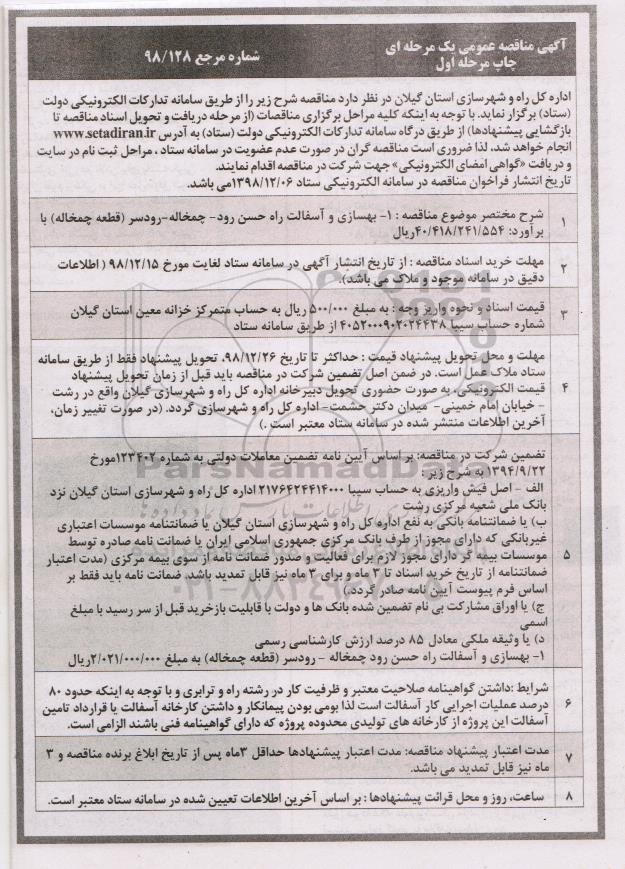 آگهی مناقصه عمومی یک مرحله ای
چاپ مرحله اول
شماره مرجع ۹۸/۱۲۸
اداره کل راه و شهرسازی استان گیلان در نظر دارد مناقصه شرح زیر را از طریق سامانه تدارکات الکترونیکی دولت
(ستاد) برگزار نماید. با توجه به اینکه کلیه مراحل برگزاری مناقصات (از مرحله دریافت و تحویل اسناد مناقصه تا
بازگشایی پیشنهادها) از طریق درگاه سامانه تدارکات الکترونیکی دولت (ستاد) به آدرس www.setadiran.ir
انجام خواهد شد، لذا ضروری است مناقصه گران در صورت عدم عضویت در سامانه ستاد ، مراحل ثبت نام در سایت
و دریافت «گواهی امضای الکترونیکی» جهت شرکت در مناقصه اقدام نمایند.
تاریخ انتشار فراخوان مناقصه در سامانه الکترونیکی ستاد ۱۳۹۸/۱۲/۰۶ می باشد.
۱ شرح مختصر موضوع مناقصه : ۱- بهسازی و آسفالت راه حسن رود- چمخاله-رودسر (قطعه چمخاله) با
برآورد: ۴۰/۴۱۸/۲۴۱/۵۵۴ریال
۲ مهلت خرید اسناد مناقصه : از تاریخ انتشار آگهی در سامانه ستاد لغایت مورخ ۹۸/۱۲/۱۵ ( اطلاعات
دقیق در سامانه موجود و ملاک می باشد).
۳ قیمت اسناد و نحوه واریز وجه : به مبلغ ۵۰۰/۰۰۰ ریال به حساب متمرکز خزانه معین استان گیلان
شماره حساب سیبا ۴۰۵۲۰۰۰۹۰۲۰۲۴۴۳۸ از طریق سامانه ستاد
۴ مهلت و محل تحویل پیشنهاد قیمت : حداکثر تا تاریخ ۹۸/۱۲/۲۶، تحویل پیشنهاد فقط از طریق سامانه
ستاد ملاک عمل است. در ضمن اصل تضمین شرکت در مناقصه باید قبل از زمان تحویل پیشنهاد
قیمت الکترونیکی، به صورت حضوری تحویل دبیرخانه اداره کل راه و شهرسازی گیلان واقع در رشت
- خیابان امام خمینی- میدان دکتر حشمت- اداره کل راه و شهرسازی گردد. (در صورت تغییر زمان،
آخرین اطلاعات منتشر شده در سامانه ستاد معتبر است .)
۵ تضمین شرکت در مناقصه: بر اساس آیین نامه تضمین معاملات دولتی به شماره ۱۲۳۴۰۲مورخ
۱۳۹۴/۹/۲۲ به شرح زیر :
الف - اصل فیش واریزی به حساب سیبا ۲۱۷۶۴۲۴۴۱۴۰۰۰ اداره کل راه و شهرسازی استان گیلان نزد
بانک ملی شعبه مرکزی رشت
ب) یا ضمانتنامه بانکی به نفع اداره کل راه و شهرسازی استان گیلان یا ضمانتنامه موسسات اعتباری
غیربانکی که دارای مجوز از طرف بانک مرکزی جمهوری اسلامی ایران یا ضمانت نامه صادره توسط
موسسات بیمه گر دارای مجوز لازم برای فعالیت و صدور ضمانت نامه از سوی بیمه مرکزی (مدت اعتبار
ضمانتنامه از تاریخ خرید اسناد تا ۳ ماه و برای ۳ ماه نیز قابل تمدید باشد. ضمانت نامه باید فقط بر
اساس فرم پیوست آیین نامه صادر گردد.)
ج) یا اوراق مشارکت بی نام تضمین شده بانک ها و دولت با قابلیت بازخرید قبل از سر رسید با مبلغ
اسمی
د) یا وثیقه ملکی معادل ۸۵ درصد ارزش کارشناسی رسمی
۱- بهسازی و آسفالت راه حسن رود چمخاله - رودسر (قطعه چمخاله) به مبلغ ۲/۰۲۱/۰۰۰/۰۰۰ریال
۶ شرایط :داشتن گواهینامه صلاحیت معتبر و ظرفیت کار در رشته راه و ترابری و با توجه به اینکه حدود ۸۰
درصد عملیات اجرایی کار آسفالت است لذا بومی بودن پیمانکار و داشتن کارخانه آسفالت یا قرارداد تامین
آسفالت این پروژه از کارخانه های تولیدی محدوده پروژه که دارای گواهینامه فنی باشند الزامی است.
۷ مدت اعتبار پیشنهاد مناقصه: مدت اعتبار پیشنهادها حداقل ۳ماه پس از تاریخ ابلاغ برنده مناقصه و ۳
ماه نیز قابل تمدید می باشد.
۸ ساعت، روز و محل قرائت پیشنهادها : بر اساس آخرین اطلاعات تعیین شده در سامانه ستاد معتبر است.
ParsNamadData